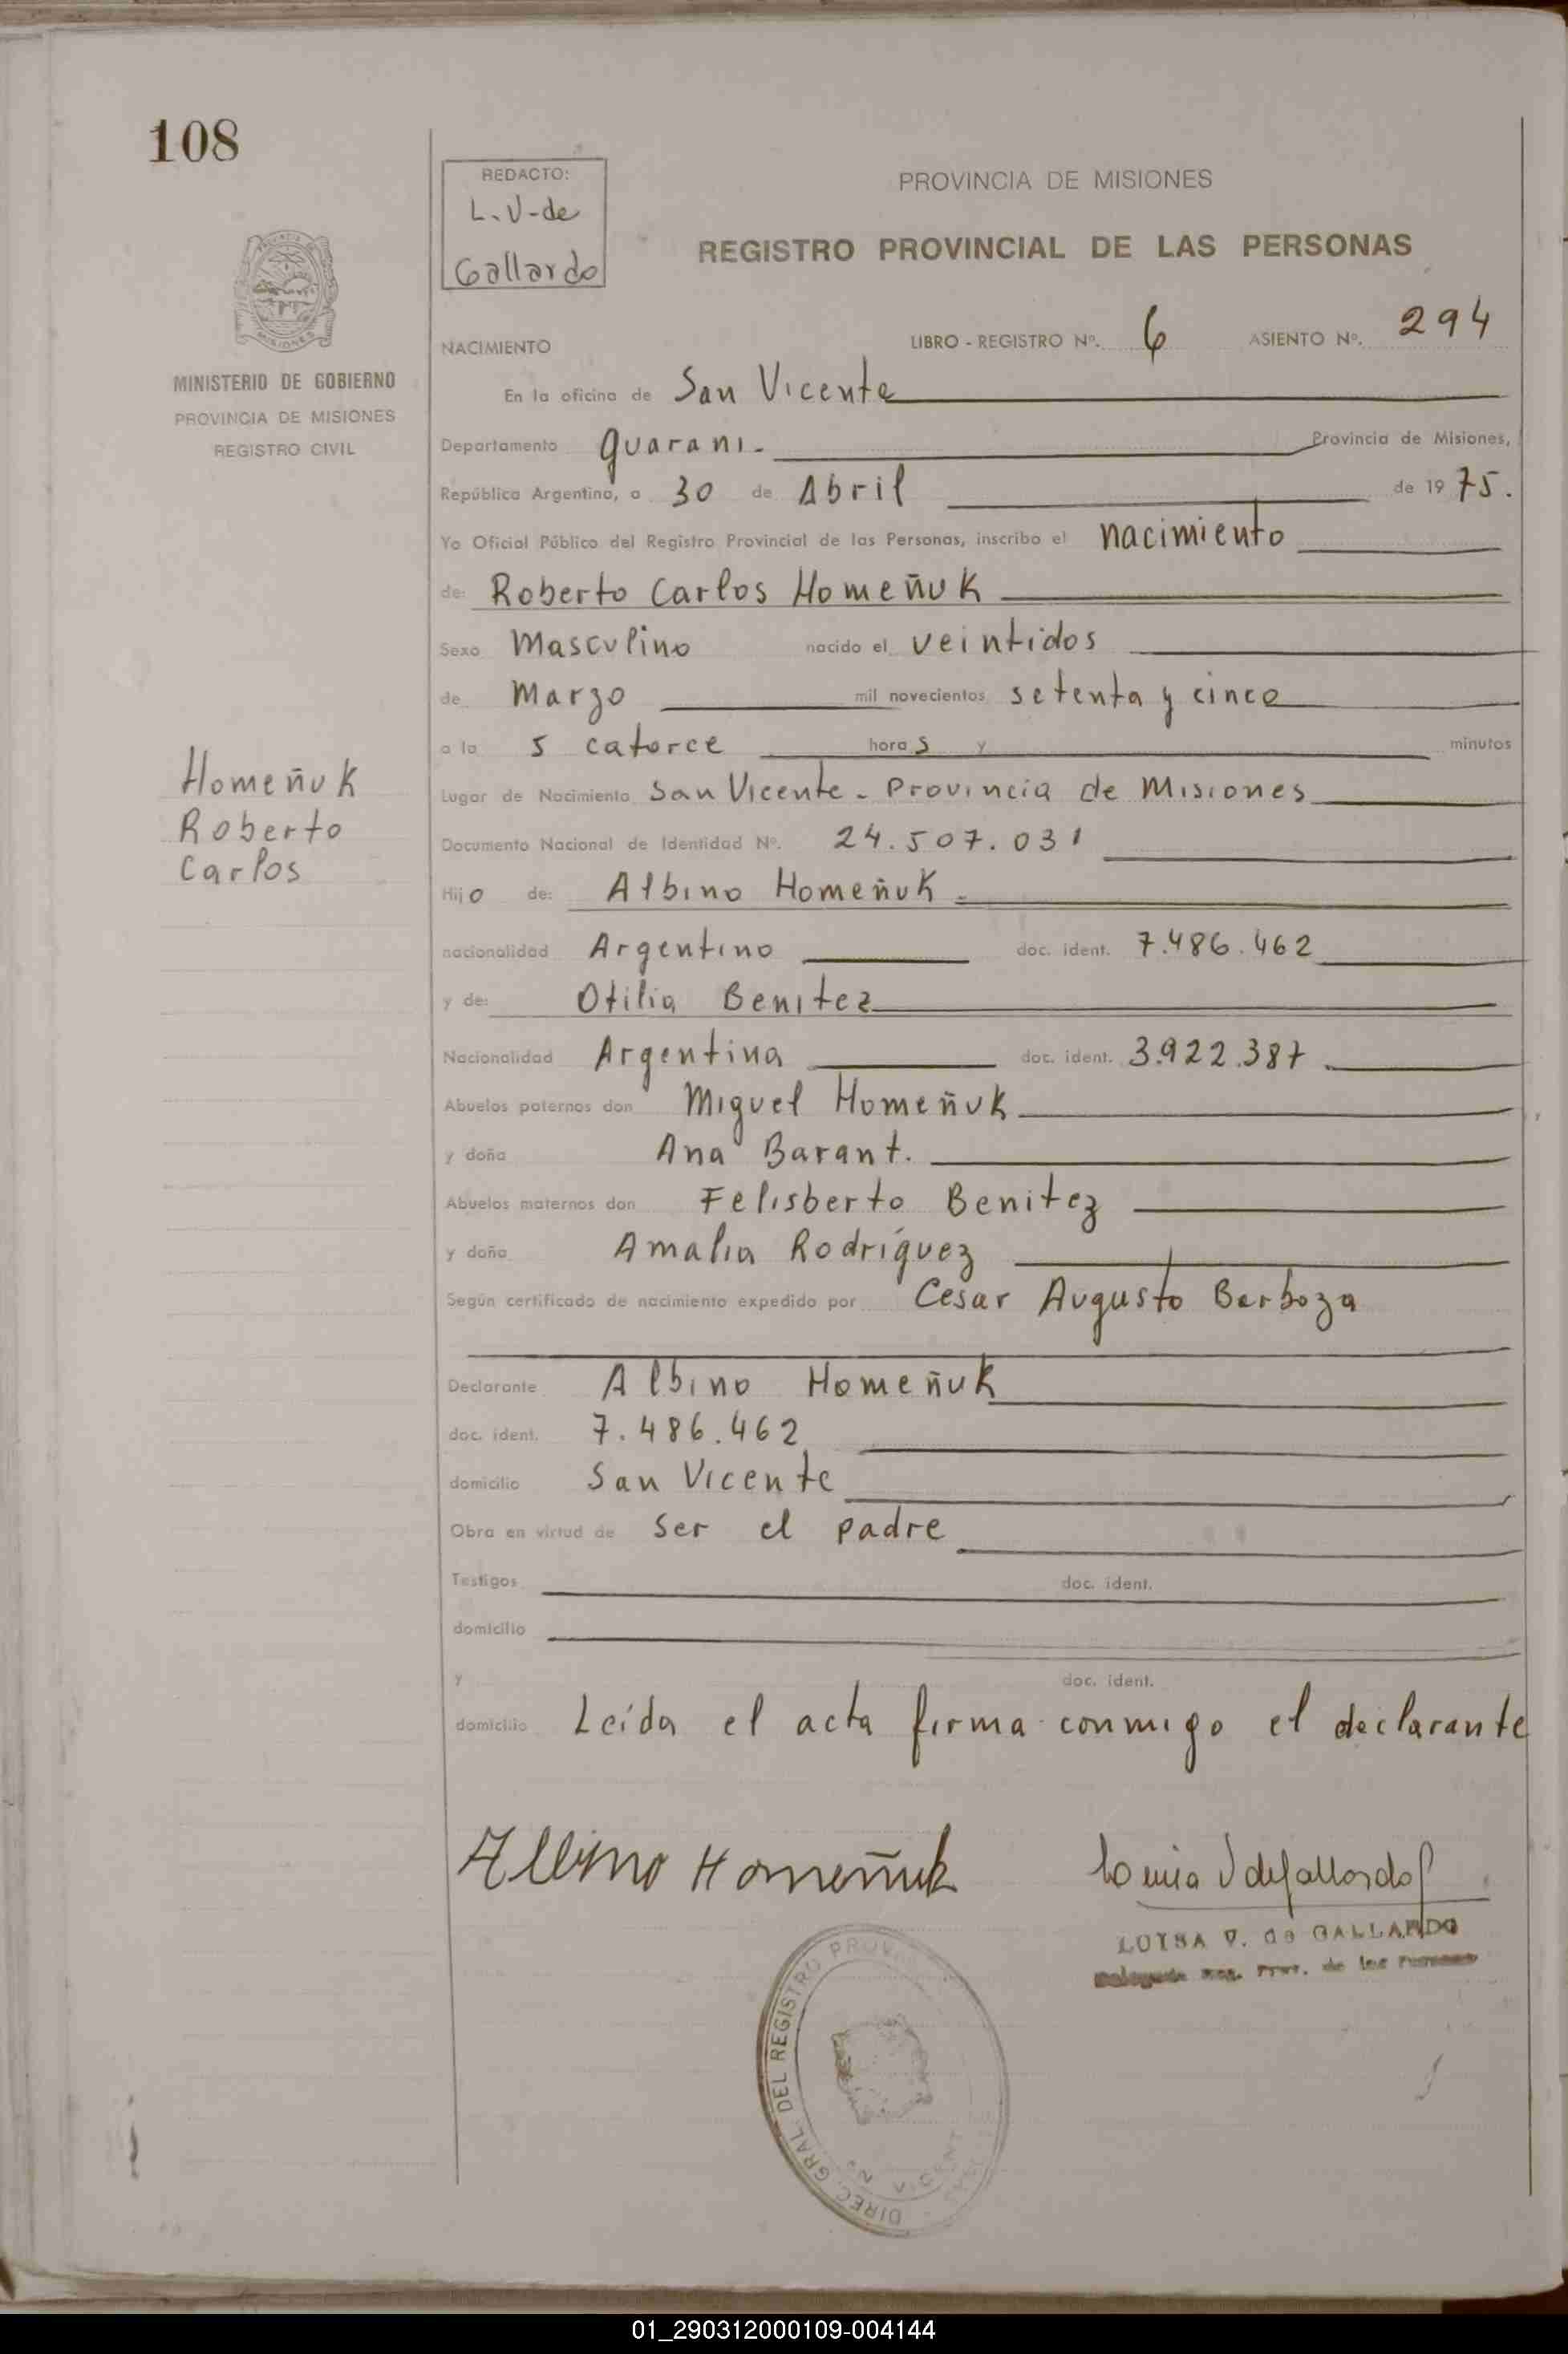 108
REDACTO:
L. V-de
Gallardo
PROVINCIA DE MISIONES
REGISTRO PROVINCIAL DE LAS PERSONAS
MINISTERIO DE GOBIERNO
PROVINCIA DE MISIONES
REGISTRO CIVIL
NACIMIENTO LIBRO - REGISTRO Nº. 6 ASIENTO Nº. 294
En la oficina de San Vicente
Departamento Guarani. Provincia de Misiones,
República Argentina, a 30 de Abril de 1975.
Yo Oficial Público del Registro Provincial de las Personas, inscribo el nacimiento
de: Roberto Carlos Homeñuk
Sexo Masculino nacido el veintidos
de Marzo mil novecientos setenta y cinco
a la s catorce horas y minutos
Homeñuk
Roberto
Carlos
Lugar de Nacimiento San Vicente - Provincia de Misiones
Documento Nacional de Identidad Nº. 24.507.031
Hijo de: Albino Homeñuk
nacionalidad Argentino doc. ident. 7.486.462
y de: Otilia Benitez
Nacionalidad Argentina doc. ident. 3.922.387
Abuelos paternos don Miguel Homeñuk
y doña Ana Barant.
Abuelos maternos don Felisberto Benitez
y doña Amalia Rodríguez
Según certificado de nacimiento expedido por Cesar Augusto Barboza
Declarante Albino Homeñuk
doc. ident. 7.486.462
domicilio San Vicente
Obra en virtud de ser el padre
Testigos doc. ident.
domicilio
y doc. ident.
domicilio Leída el acta firma conmigo el declarante
Albino Homeñuk
Luisa V de Gallardo
LUISA V. de GALLARDO
Reg. Prov. de las Personas
DIREC. GRAL. DEL REGISTRO PROV.
01_290312000109-004144